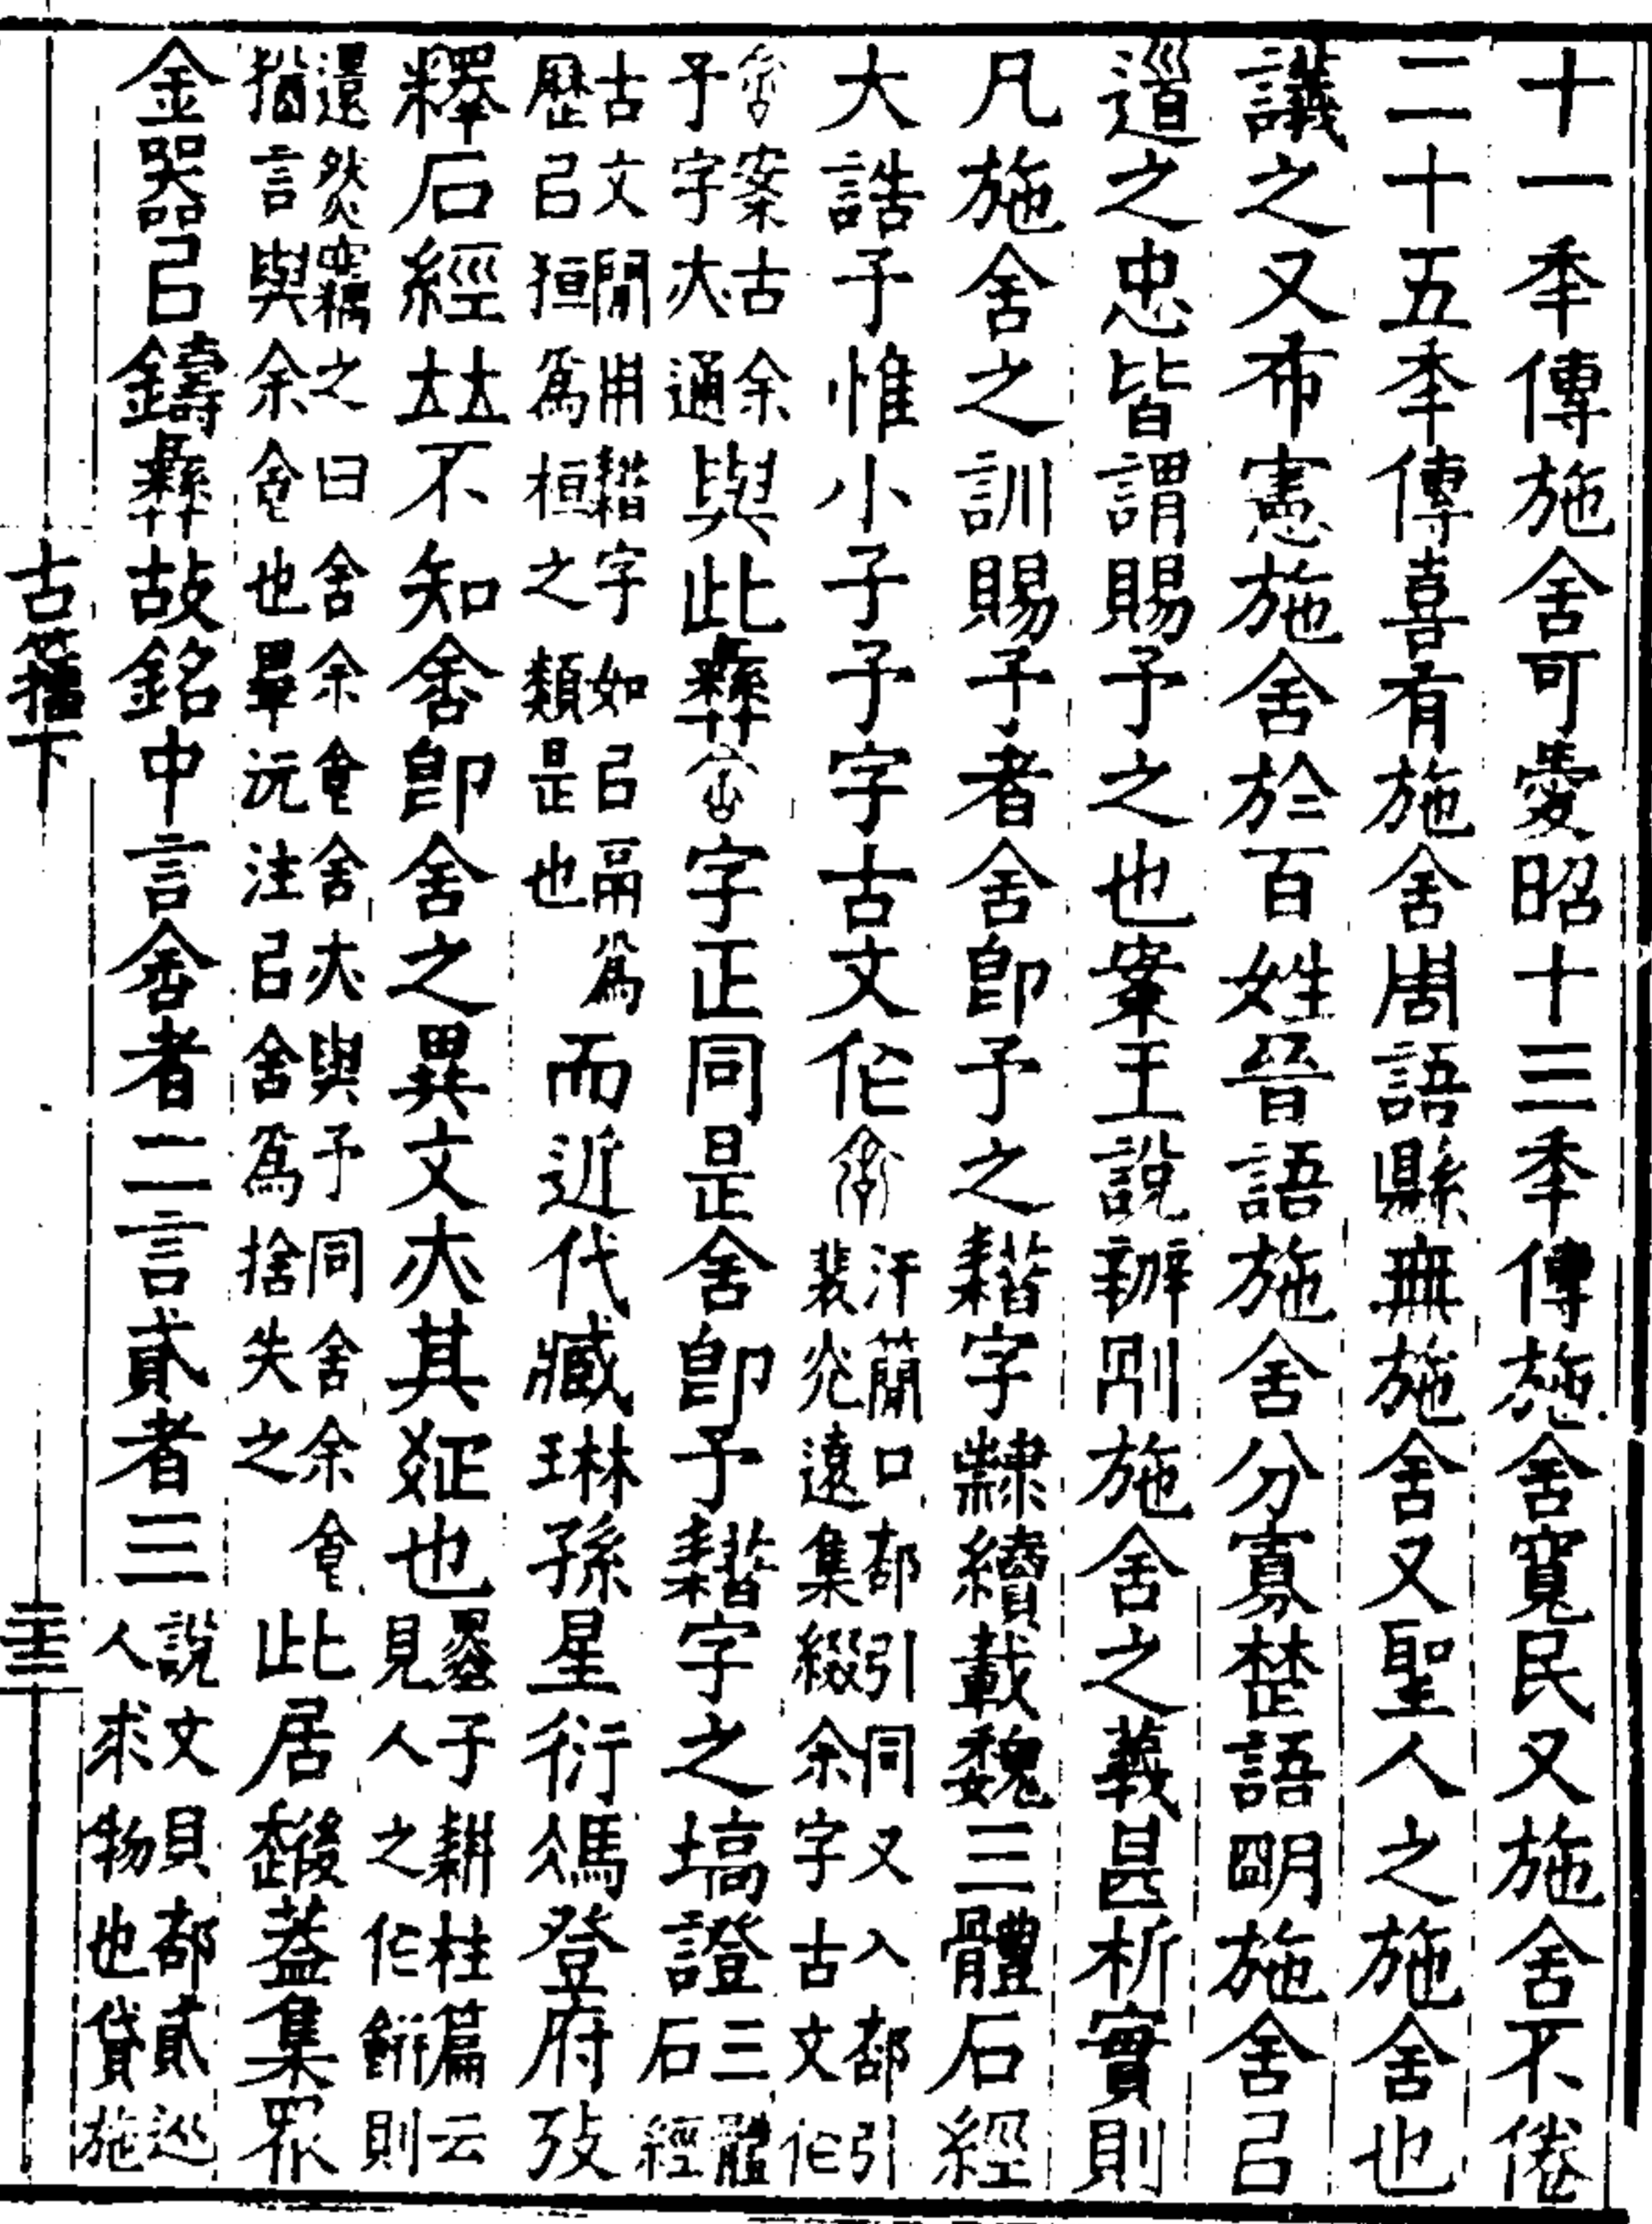 十一秊傳施舍可愛昭十三秊傳施舍寬民又施舍不倦
二十五秊傳喜有施舍周語縣無施舍又聖人之施舍也
議之又布憲施舍於百姓晉語施舍分寡楚語朙施舍㠯
道之忠皆謂賜予之也案王說辦𠛬施舍之義甚析實則
凡施舍之訓賜予者舍卽予之㬱字隸續載魏三體石經
大誥予惟小子予字古文作𠎳汗簡口部引同又入部引裴光遠集綴余字古文作
𠎳案古余予字亦通與此彝字正同是舍卽予㬱字之塙證三體石經
古文閒用㬱字如㠯鬲爲歷㠯狟爲桓之類是也而近代臧琳孫星衍馮登府攷
釋石經竝不知𦧶卽舍之異文亦其疏也墨子耕柱篇云見人之作餅則
還然竊之曰舍余食舍亦與予同舍余食猶言與余食也畢沅注㠯舍爲捨失之此居𧽙蓋集眾
金器㠯鑄彝故銘中言𦧶者二言貣者三說文貝部貣從人求物也貸施
古籀下
二十三